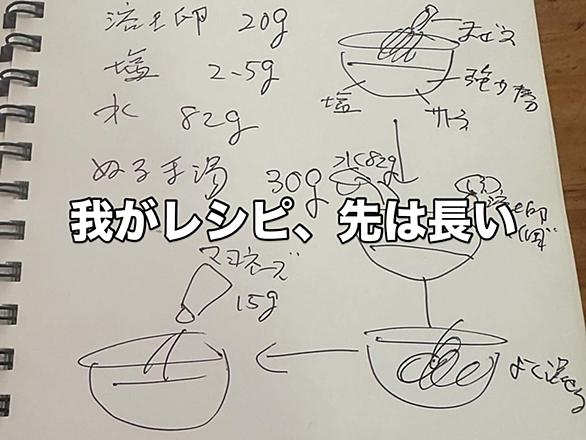 溶き卵 20g
塩 2.5g
水 82g
ぬるま湯 30g
まぜる
強力粉
塩
サトウ
水82g
溶き卵
我がレシピ、先は長い
マヨネーズ
15g
よく混ぜる